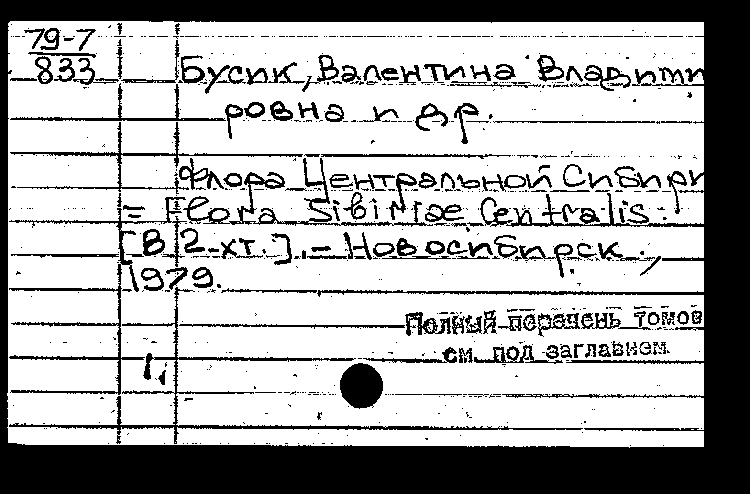 79-7
833
Бусик, Валентина Владими
ровна и др.
Флора Центральной Сибири
= Flora Sibiriae Centralis:
[В 2-хт.]. - Новосибирск.,
1979.
Полный перечень томов
см. под заглавием